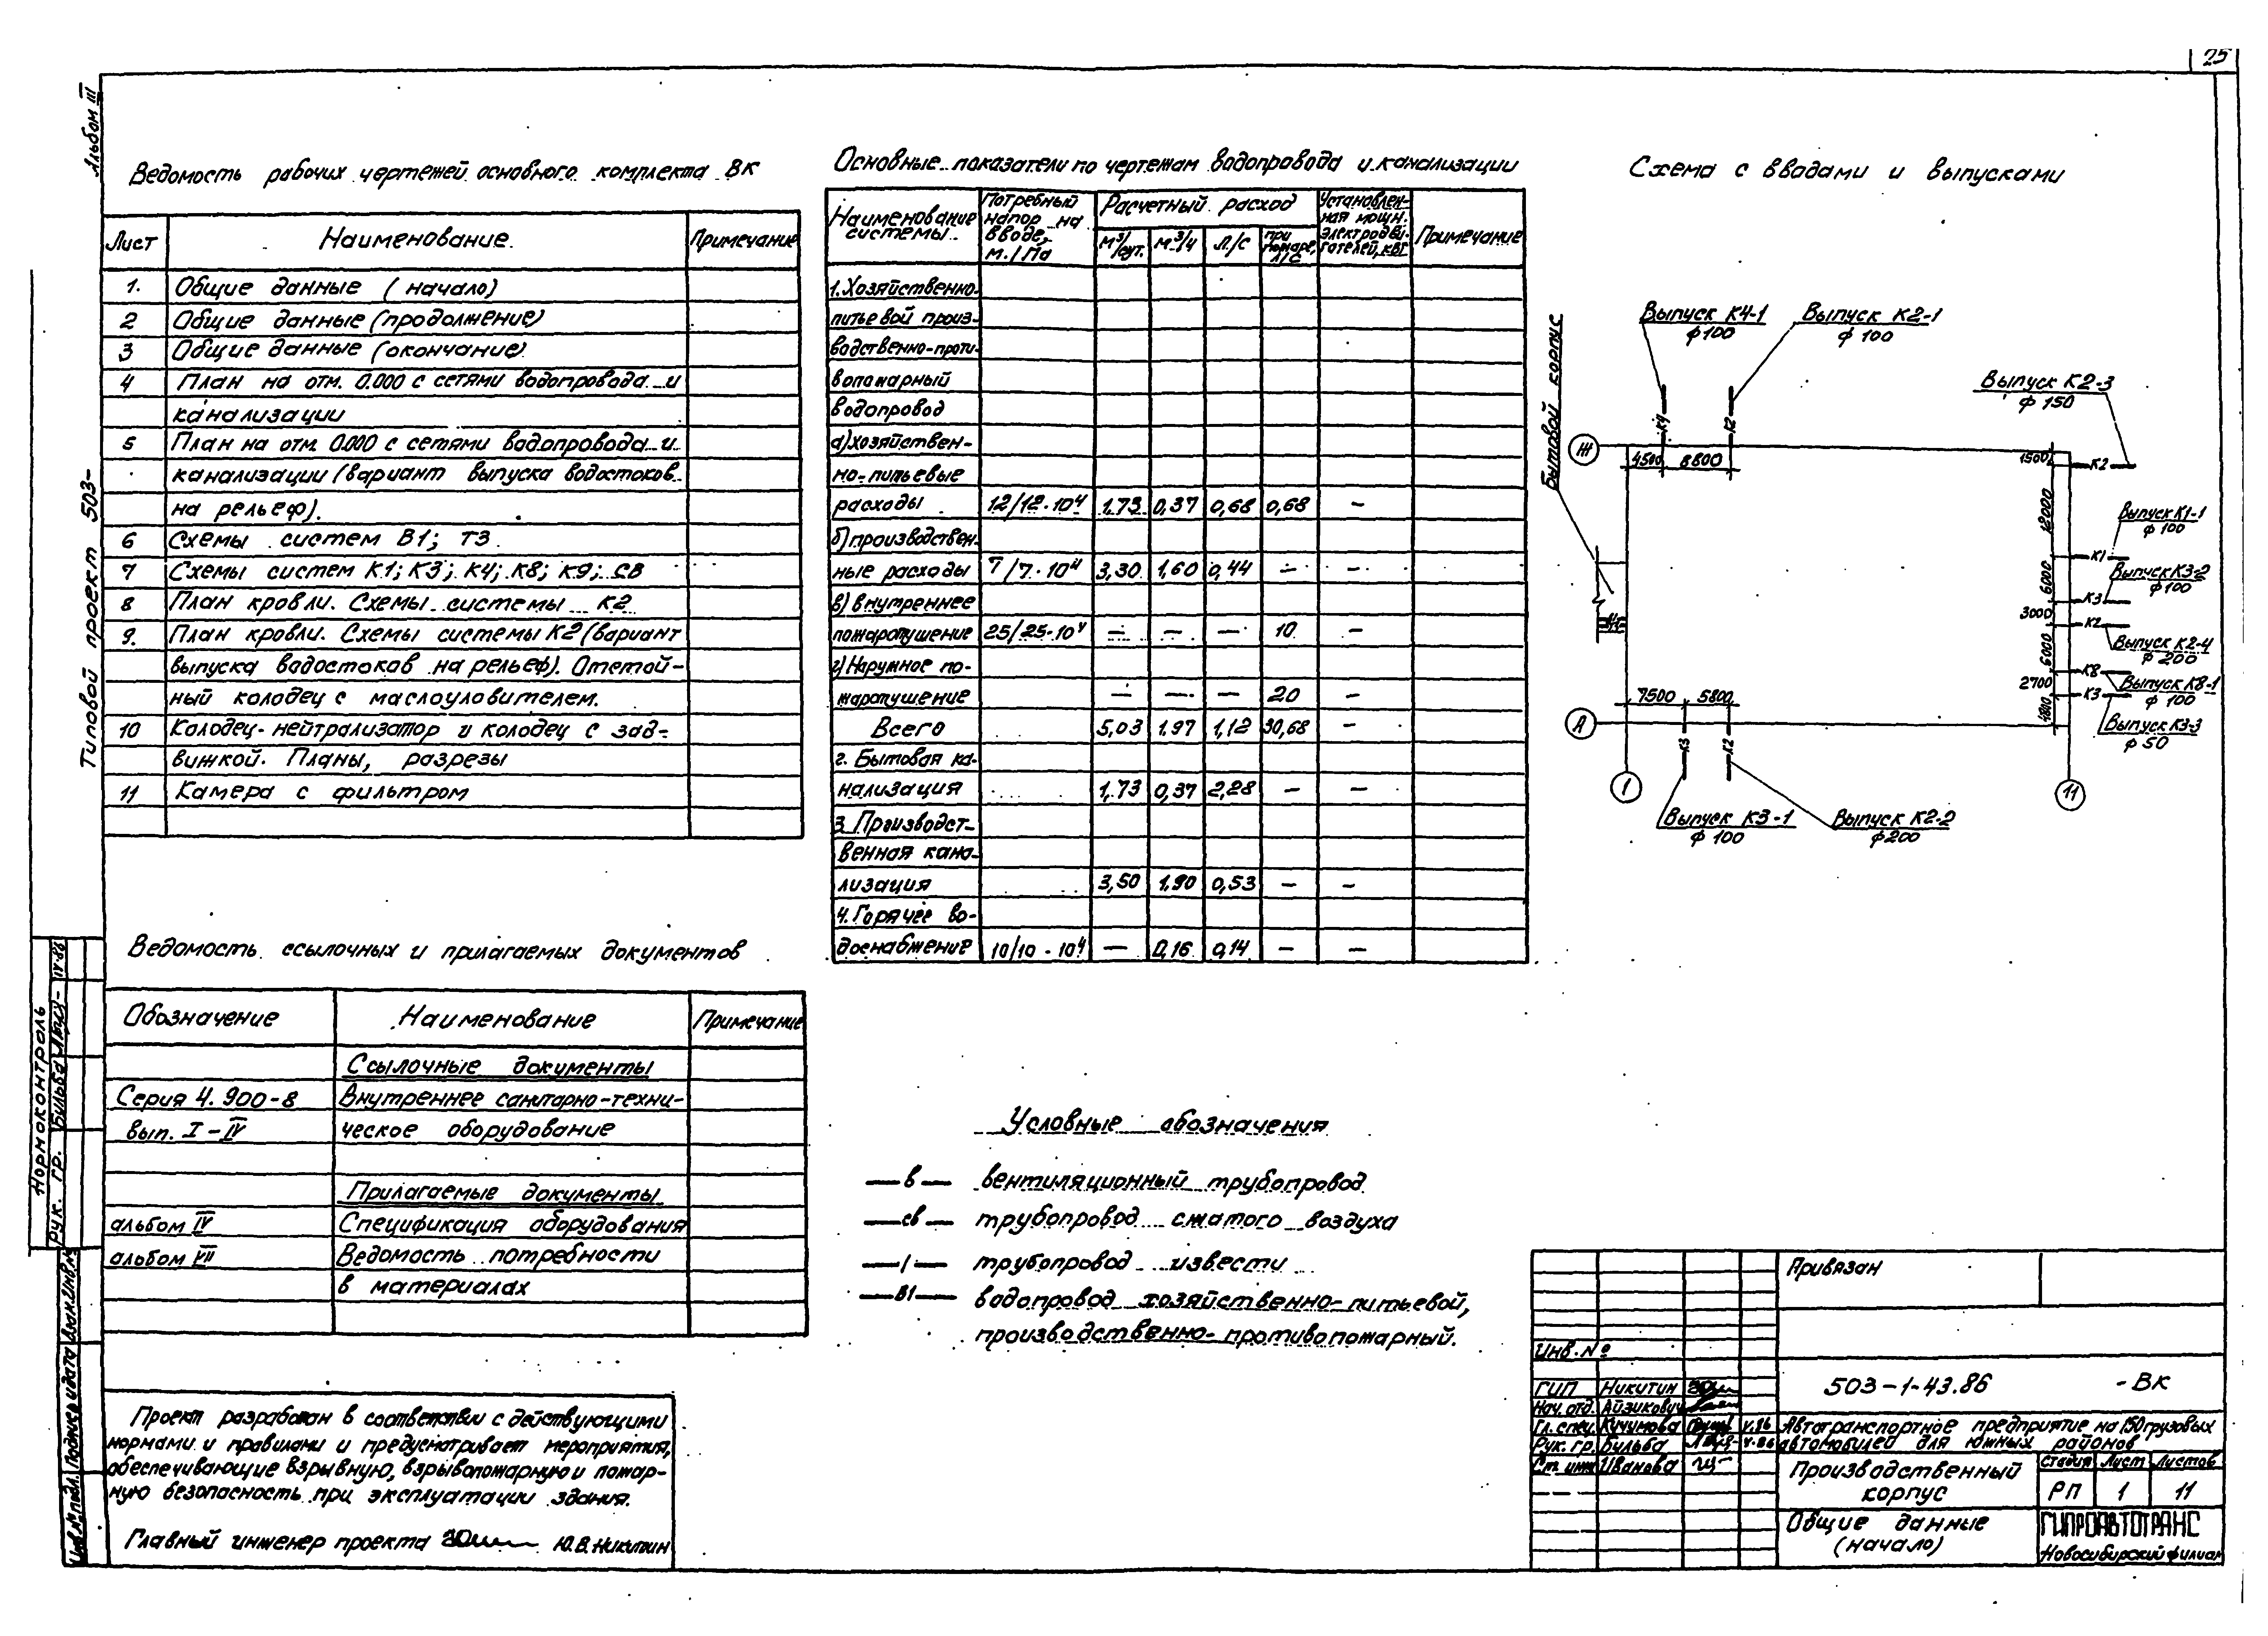 25
Альбом III
Типовой проект 503-
Ведомость рабочих чертежей основного комплекта ВК
Лист Наименование Примечание
1. Общие данные (начало)
2 Общие данные (продолжение)
3 Общие данные (окончание)
4 План на отм. 0.000 с сетями водопровода и
канализации
5 План на отм. 0.000 с сетями водопровода и
канализации (вариант выпуска водостоков
на рельеф).
6 Схемы систем В1; Т3
7 Схемы систем К1; К3; К4; К8; К9; СВ
8 План кровли. Схемы системы К2
9. План кровли. Схемы системы К2 (вариант
выпуска водостоков на рельеф). Отстой-
ный колодец с маслоуловителем.
10 Колодец-нейтрализатор и колодец с зад-
вижкой. Планы, разрезы
11 Камера с фильтром
Ведомость ссылочных и прилагаемых документов
Обозначение Наименование Примечание
Ссылочные документы
Серия 4.900-8 Внутреннее санитарно-техни-
вып. I-IV ческое оборудование
Прилагаемые документы
альбом IV Спецификация оборудования
альбом VII Ведомость потребности
в материалах
Проект разработан в соответствии с действующими
нормами и правилами и предусматривает мероприятия,
обеспечивающие взрывную, взрывопожарную и пожар-
ную безопасность при эксплуатации здания.
Главный инженер проекта Ю.В. Никитин
Основные показатели по чертежам водопровода и канализации
Наименование системы Потребный напор на вводе, м./Па Расчетный расход Установлен-ная мощн. электродви-гателей, квт Примечание
м³/сут. м³/ч л/с при пожаре, л/с
1. Хозяйственно-
питьевой произ-
водственно-проти-
вопожарный
водопровод
а) хозяйствен-
но-питьевые
расходы 12/12·10⁴ 1.73 0,37 0,68 0,68 —
б) производствен-
ные расходы 7/7·10⁴ 3,30 1,60 0,44 — —
в) внутреннее
пожаротушение 25/25·10⁴ — — — 10 —
г) Наружное по-
жаротушение — — — 20 —
Всего 5,03 1.97 1,12 30,68 —
2. Бытовая ка-
нализация 1,73 0,37 2,28 — —
3. Производст-
венная кана-
лизация 3,50 1,90 0,53 — —
4. Горячее во-
доснабжение 10/10·10⁴ — 0,16 0,14 — —
Условные обозначения
—в— вентиляционный трубопровод
—св— трубопровод сжатого воздуха
—I— трубопровод извести
—В1— водопровод хозяйственно-питьевой,
производственно-противопожарный.
Схема с вводами и выпусками
Бытовой корпус
Выпуск К4-1
ф100
Выпуск К2-1
ф 100
Выпуск К2-3
ф 150
К4 К2
Ж
4500 8800
1500 К2
12000
Выпуск К1-1
ф 100
К1
6000
Выпуск К3-2
ф100
К3
3000
К2
Выпуск К2-4
ф 200
6000
К8
2700
Выпуск К8-1
ф 100
К3
4800
Выпуск К3-3
ф 50
7500 5800
А
К3 К2
I 11
Выпуск К3-1
ф 100
Выпуск К2-2
ф200
Нормоконтроль
Рук. гр. Бульба IV-86
Инв.№ подл. Подпись и дата Взам.инв.№
Привязан
Инв. №
503-1-43.86 -ВК
ГИП Никитин
Нач. отд. Айзикович
Гл. спец. Кучумова V.86
Рук. гр. Бульба V.86
Ст. инж. Иванова
Автотранспортное предприятие на 150 грузовых
автомобилей для южных районов
Производственный
корпус
Стадия Лист Листов
РП 1 11
Общие данные
(начало)
ГИПРОАВТОТРАНС
Новосибирский филиал